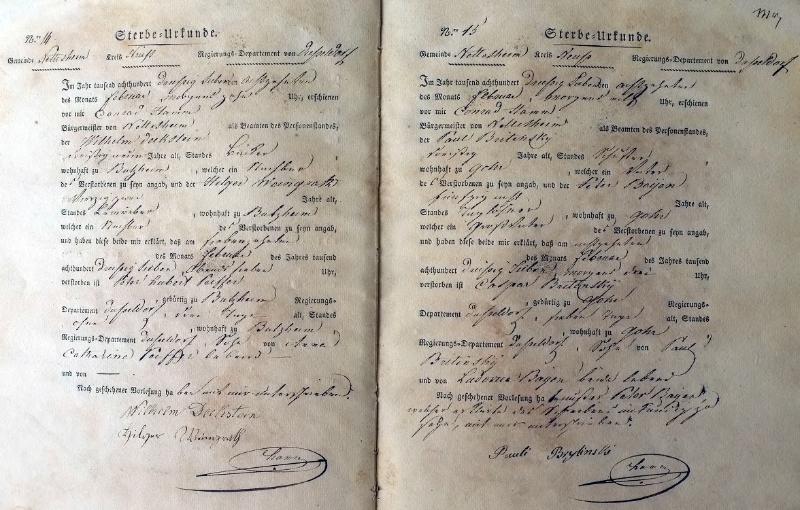 Nro 14
Sterbe-Urkunde.
Gemeinde Nettesheim Kreis Neuß Regierungs-Departement von Düsseldorf
Im Jahr tausend achthundert dreißig sieben achtzehnten
des Monats Februar, morgens zehn Uhr, erschienen
vor mir Conrad Hamm
Bürgermeister von Nettesheim als Beamten des Personenstandes,
der Wilhelm Deckstein
Jahre alt, Standes
wohnhaft zu Butzheim, welcher ein Nachbar
des Verstorbenen zu seyn angab, und der Hilger
Jahre alt,
Standes, wohnhaft zu Butzheim
welcher ein Nachbar des Verstorbenen zu seyn angab,
und haben diese beide mir erklärt, daß am siebenzehnten
des Monats Februar des Jahres tausend
achthundert dreißig sieben Abends sieben Uhr,
verstorben ist Peter Hubert
gebürtig zu Butzheim Regierungs-
Departement Düsseldorf, eine Tage alt, Standes
ohne, wohnhaft zu Butzheim
Regierungs-Departement Düsseldorf, Sohn von Anna
Catharina lebend
und von —
Nach geschehener Vorlesung haben mit mir unterschrieben.
Wilhelm Deckstein
Hilger
Hamm
Nro 15
Sterbe-Urkunde.
Gemeinde Nettesheim Kreis Neuß Regierungs-Departement von Düsseldorf
Im Jahr tausend achthundert dreißig sieben den achtzehnten
des Monats Februar, morgens Uhr, erschienen
vor mir Conrad Hamm
Bürgermeister von Nettesheim als Beamten des Personenstandes,
der Paul Britinsky
Jahre alt, Standes Schuster
wohnhaft zu Gohr, welcher ein Vater
des Verstorbenen zu seyn angab, und der Peter
fünfzig acht Jahre alt,
Standes Taglöhner, wohnhaft zu Gohr
welcher ein Großvater des Verstorbenen zu seyn angab,
und haben diese beide mir erklärt, daß am achtzehnten
des Monats Februar des Jahres tausend
achthundert dreißig sieben morgens drei Uhr,
verstorben ist Caspar Britinsky
gebürtig zu Gohr Regierungs-
Departement Düsseldorf, sieben Tage alt, Standes
, wohnhaft zu Gohr
Regierungs-Departement Düsseldorf, Sohn von Paul
Britinsky
und von Ludovica beide lebend
Nach geschehener Vorlesung ha Peter
mit mir unterschrieben.
Pauli Brytinski
Hamm